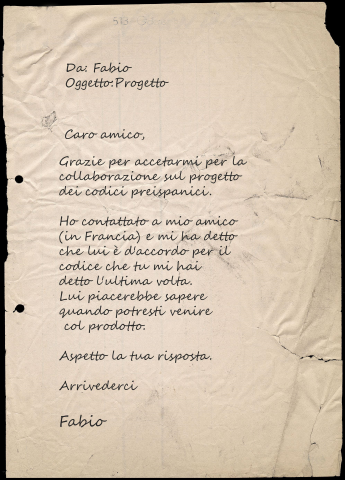 Da: Fabio
Oggetto:Progetto
Caro amico,
Grazie per accetarmi per la
collaborazione sul progetto
dei codici preispanici.
Ho contattato a mio amico
(in Francia) e mi ha detto
che lui è d'accordo per il
codice che tu mi hai
detto l'ultima volta.
Lui piacerebbe sapere
quando potresti venire
col prodotto.
Aspetto la tua risposta.
Arrivederci
Fabio